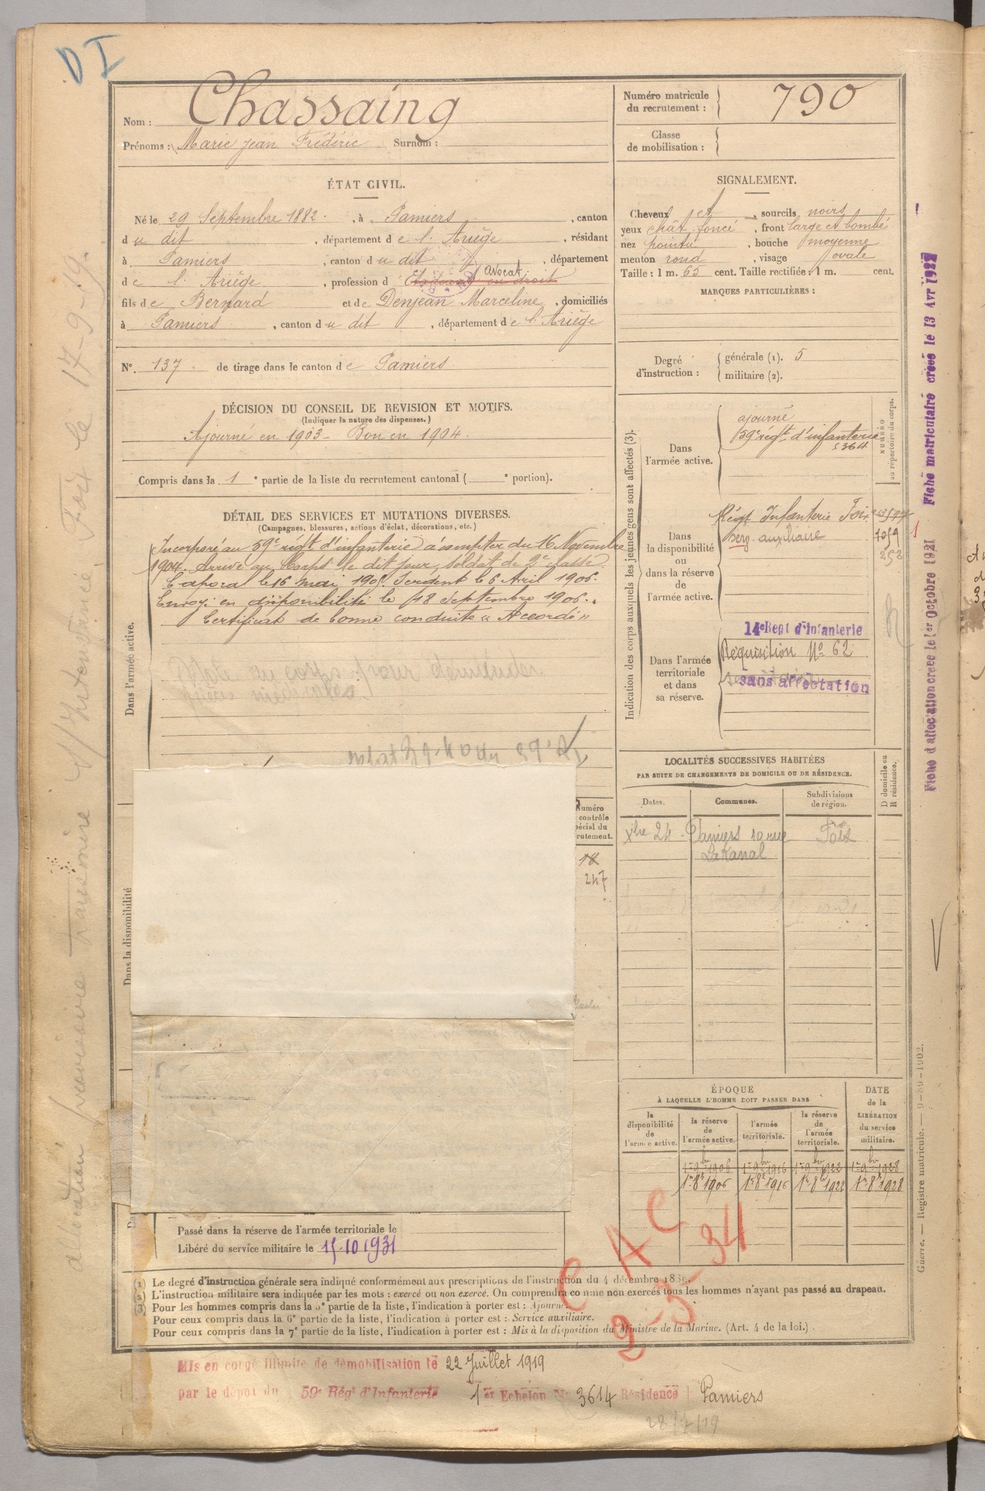 D I
Nom : Chassaing
Prénoms : Marie Jean Frédéric Surnom :
Numéro matricule du recrutement : 790
Classe de mobilisation :
ÉTAT CIVIL.
Né le 29 Septembre 1882, à Pamiers, canton
du dit, département de l'Ariège, résidant
à Pamiers, canton du dit, département
de l'Ariège, profession d Etudiant en droit avocat
fils de Bernard et de Denjean Marceline, domiciliés
à Pamiers, canton du dit, département de l'Ariège
N° 137 de tirage dans le canton de Pamiers
SIGNALEMENT.
Cheveux et, sourcils noirs
yeux chât. foncé, front large et bombé
nez pointu, bouche moyenne
menton rond, visage ovale
Taille : 1 m. 65 cent. Taille rectifiée : 1 m. cent.
MARQUES PARTICULIÈRES :
Degré d'instruction : générale (1). 5
militaire (2).
DÉCISION DU CONSEIL DE REVISION ET MOTIFS.
(Indiquer la nature des dispenses.)
Ajourné en 1903 - Bon en 1904.
Compris dans la 1e partie de la liste du recrutement cantonal ( e portion).
DÉTAIL DES SERVICES ET MUTATIONS DIVERSES.
(Campagnes, blessures, actions d'éclat, décorations, etc.)
Dans l'armée active.
Incorporé au 59e régt d'infanterie à compter du 16 Novembre
1904. Arrivé au Corps le dit jour, soldat de 2e classe.
Caporal le 16 mai 1905. Sergent le 6 Avril 1906.
Envoyé en disponibilité le 18 Septembre 1906.
Certificat de bonne conduite "Accordé"
Dans la disponibilité
Numéro
contrôle
spécial du
recrutement.
18
247
Indication des corps auxquels les jeunes gens sont affectés (3).
NUMÉRO au répertoire du corps.
Dans l'armée active.
ajourné
59e régt d'infanterie
5364
Dans la disponibilité ou dans la réserve de l'armée active.
Régt Infanterie Foix
serv. auxiliaire
1059
252
Dans l'armée territoriale et dans sa réserve.
14e Regt d'Infanterie
Réquisition No 62
sans affectation
LOCALITÉS SUCCESSIVES HABITÉES
PAR SUITE DE CHANGEMENTS DE DOMICILE OU DE RÉSIDENCE.
Dates. Communes. Subdivisions de région. D domicile ou R résidence.
Xbre 24 Pamiers 10 rue Foix
Lakanal
ÉPOQUE
À LAQUELLE L'HOMME DOIT PASSER DANS
la disponibilité de l'armée active.
la réserve de l'armée active.
l'armée territoriale.
la réserve de l'armée territoriale.
DATE de la LIBÉRATION du service militaire.
1er 8bre 1906 1er 8bre 1916 1er 8bre 1922 1er 8bre 1928
Passé dans la réserve de l'armée territoriale le
Libéré du service militaire le 15.10 1931
C A C
2-5-34
(1) Le degré d'instruction générale sera indiqué conformément aux prescriptions de l'instruction du 4 décembre 1889.
(2) L'instruction militaire sera indiquée par les mots : exercé ou non exercé. On comprendra comme non exercés tous les hommes n'ayant pas passé au drapeau.
(3) Pour les hommes compris dans la 5e partie de la liste, l'indication à porter est : Ajourné.
Pour ceux compris dans la 6e partie de la liste, l'indication à porter est : Service auxiliaire.
Pour ceux compris dans la 7e partie de la liste, l'indication à porter est : Mis à la disposition du Ministre de la Marine. (Art. 4 de la loi.)
Mis en congé illimité de démobilisation le 22 Juillet 1919
par le dépôt du 59e Rég' d'Infanterie 1er Echelon No 3614 Résidence Pamiers
28/7/19
Fiche d'affectation créée le 1er Octobre 1921 Fiche matriculaire créée le 13 Avr 1927
Guerre. — Registre matricule. — 9-89-1902.